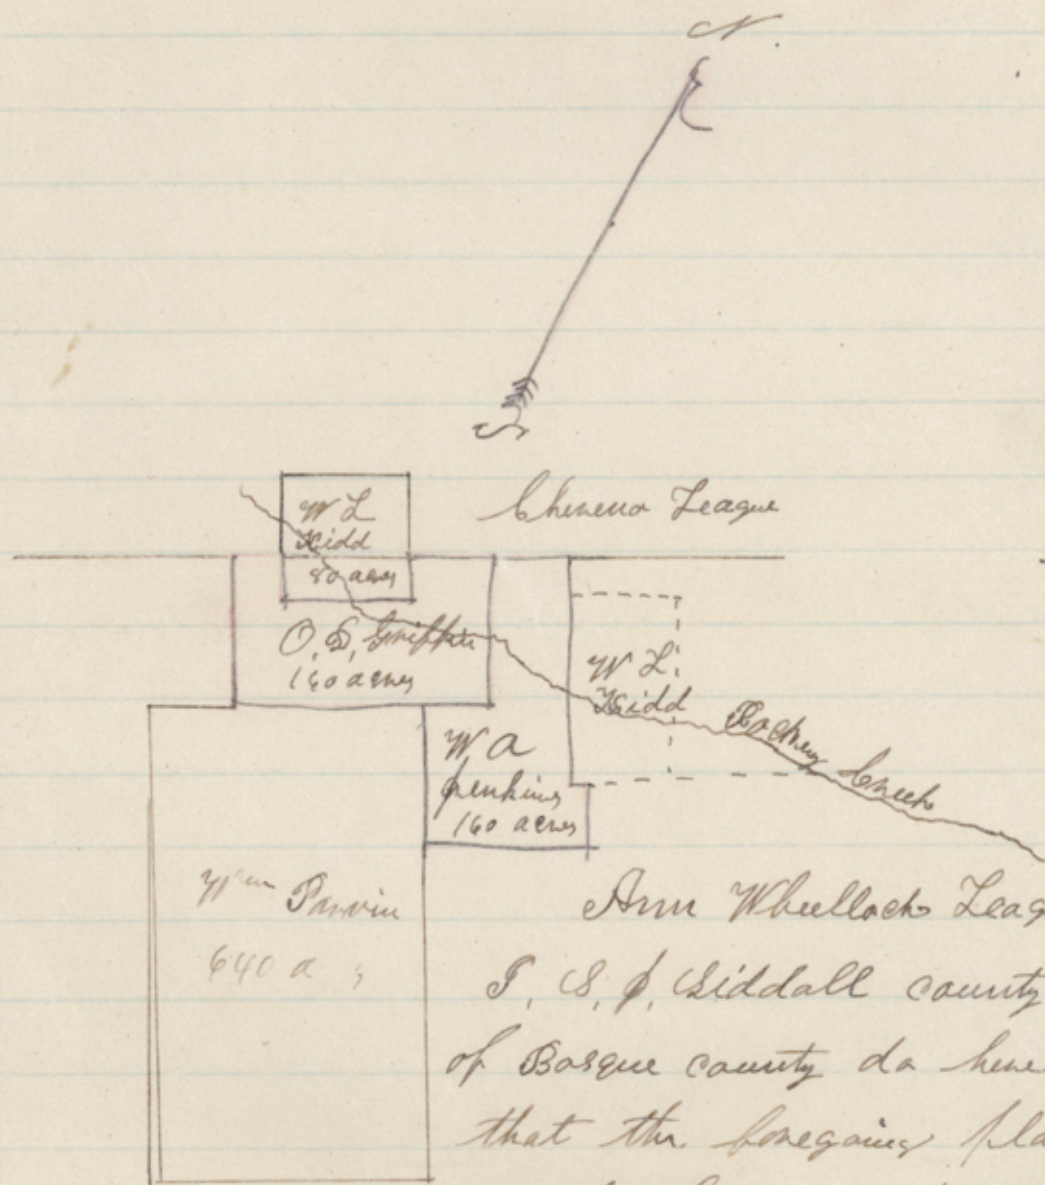 N.
S
W L
Kidd
80 acres
Cheneno League
O. D. Griffin
160 acres
W L.
Kidd
Rocky Creek
W A
Jenkins
160 acres
Wm Parvin
640 a
Ann Wheellock League
I, S, J, Siddall county
of Bosque county do here
that the foregoing pla